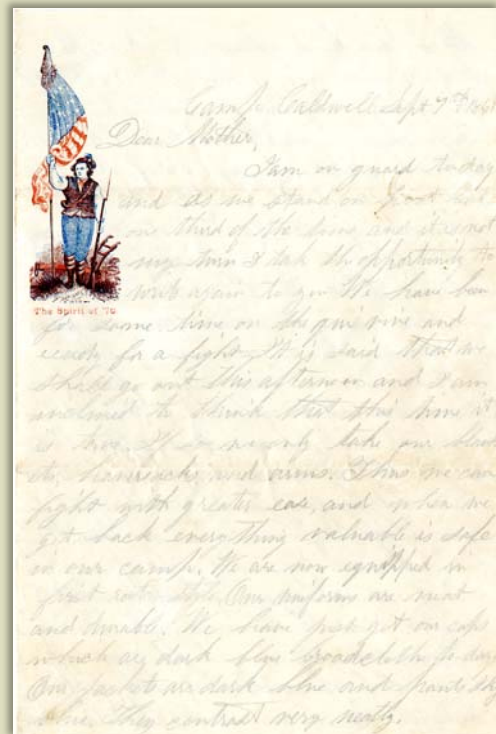 Camp Caldwell Sept 7th 1861
Dear Mother,
I am on guard today
and as we stand on post but
one third of the time and it is not
my turn I tak th opportunity to
write again to you We have been
The Spirit of '76
for some time on the qui vive and
ready for a fight. It is said that we
shall go out this afternoon and I am
inclined to think that this time it
is true. If so we only take our blank
ets, haversacks, and arms. Thus we can
fight with greater ease, and when we
get back everything valuable is safe
in our camp. We are now equipped in
first rate style. Our uniforms are neat
and durable. We have just got our caps
which are dark blue broadcloth
Our jackets are dark blue and pants sky
blue. They contrast very neatly.